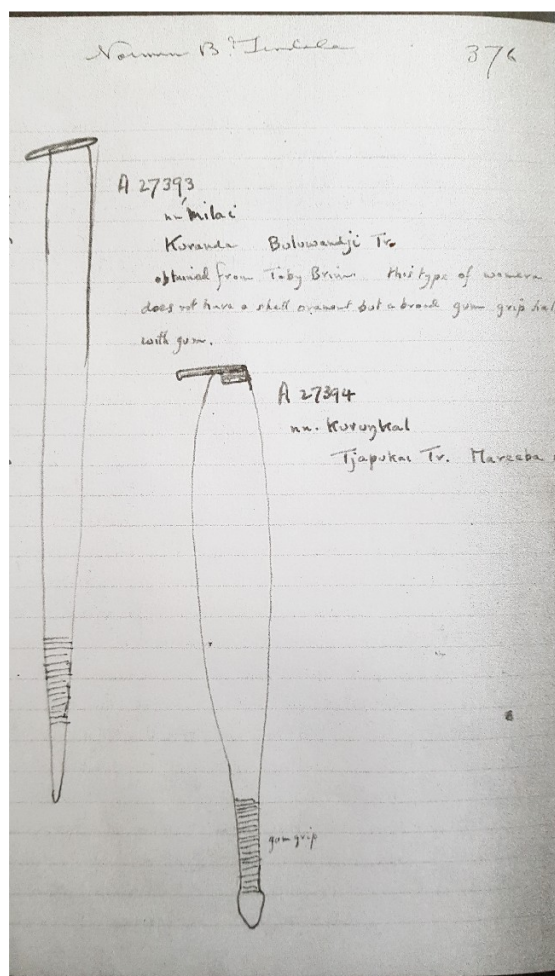 Norman B. Tindale
376
A 27393
nn 'milai
Kuranda Buluwandji Tr.
obtained from Toby Brim this type of womera
does not have a shell ornament but a broad gum grip
with gum.
A 27394
nn. Kuruŋkal
Tjapukai Tr. Mareeba
gum grip